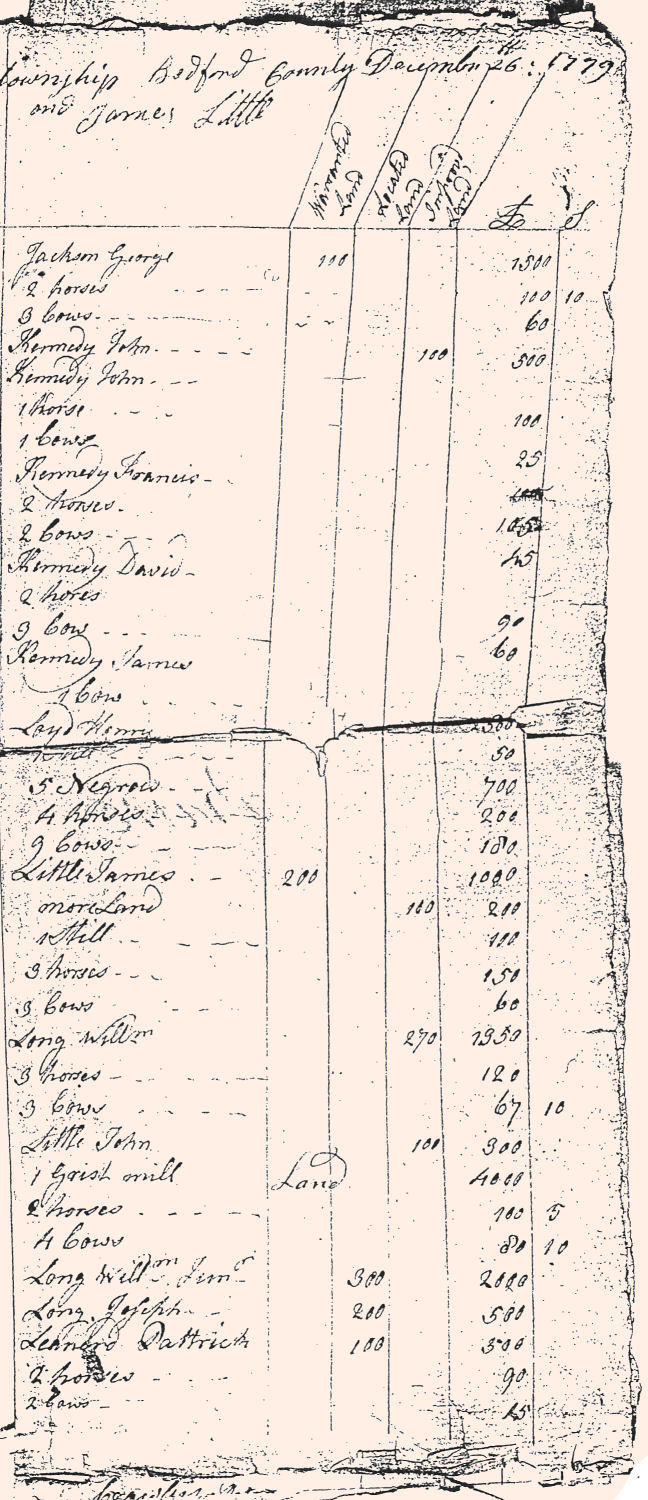 township Bedford County December 26th: 1779
and James Little
Warranted Land Located Land Improvd Land £ S
Jackson George 100 1500
2 horses 100 10
3 Cows 60
Kennedy John 100 500
Kennedy John
1 horse 100
1 Cows 25
Kennedy Francis
2 horses
2 Cows 45
Kennedy David
2 hores 90
3 Cow 60
Kennedy James
1 Cow
Loyd Henry
50
5 Negrows 700
4 horses 200
9 Cows 180
Little James 200 1000
more Land 100 200
1 Still 100
3 horses 150
3 Cows 60
Long Willm 270 1350
3 horses 120
3 Cows 67 10
Little John 100 300
1 Grist mill Land 4000
2 horses 100 5
4 Cows 80 10
Long Willm Junr 300 2000
Long Joseph 200 500
Leanerd Pattrick 100 500
2 horses 90
2 Cows 45